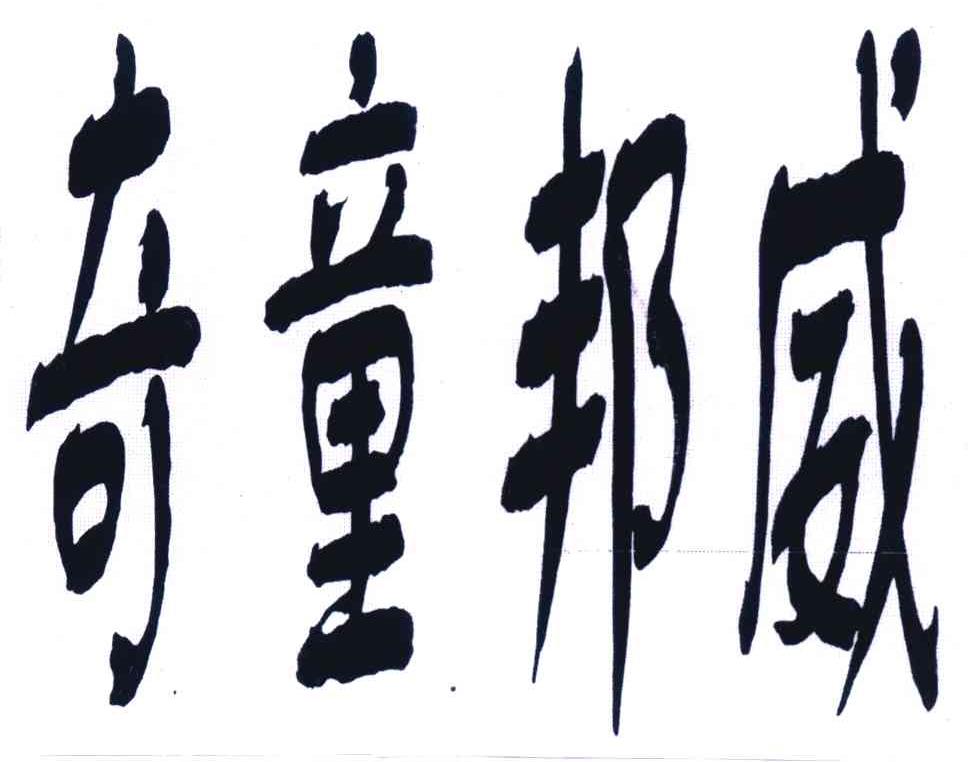 奇童邦威